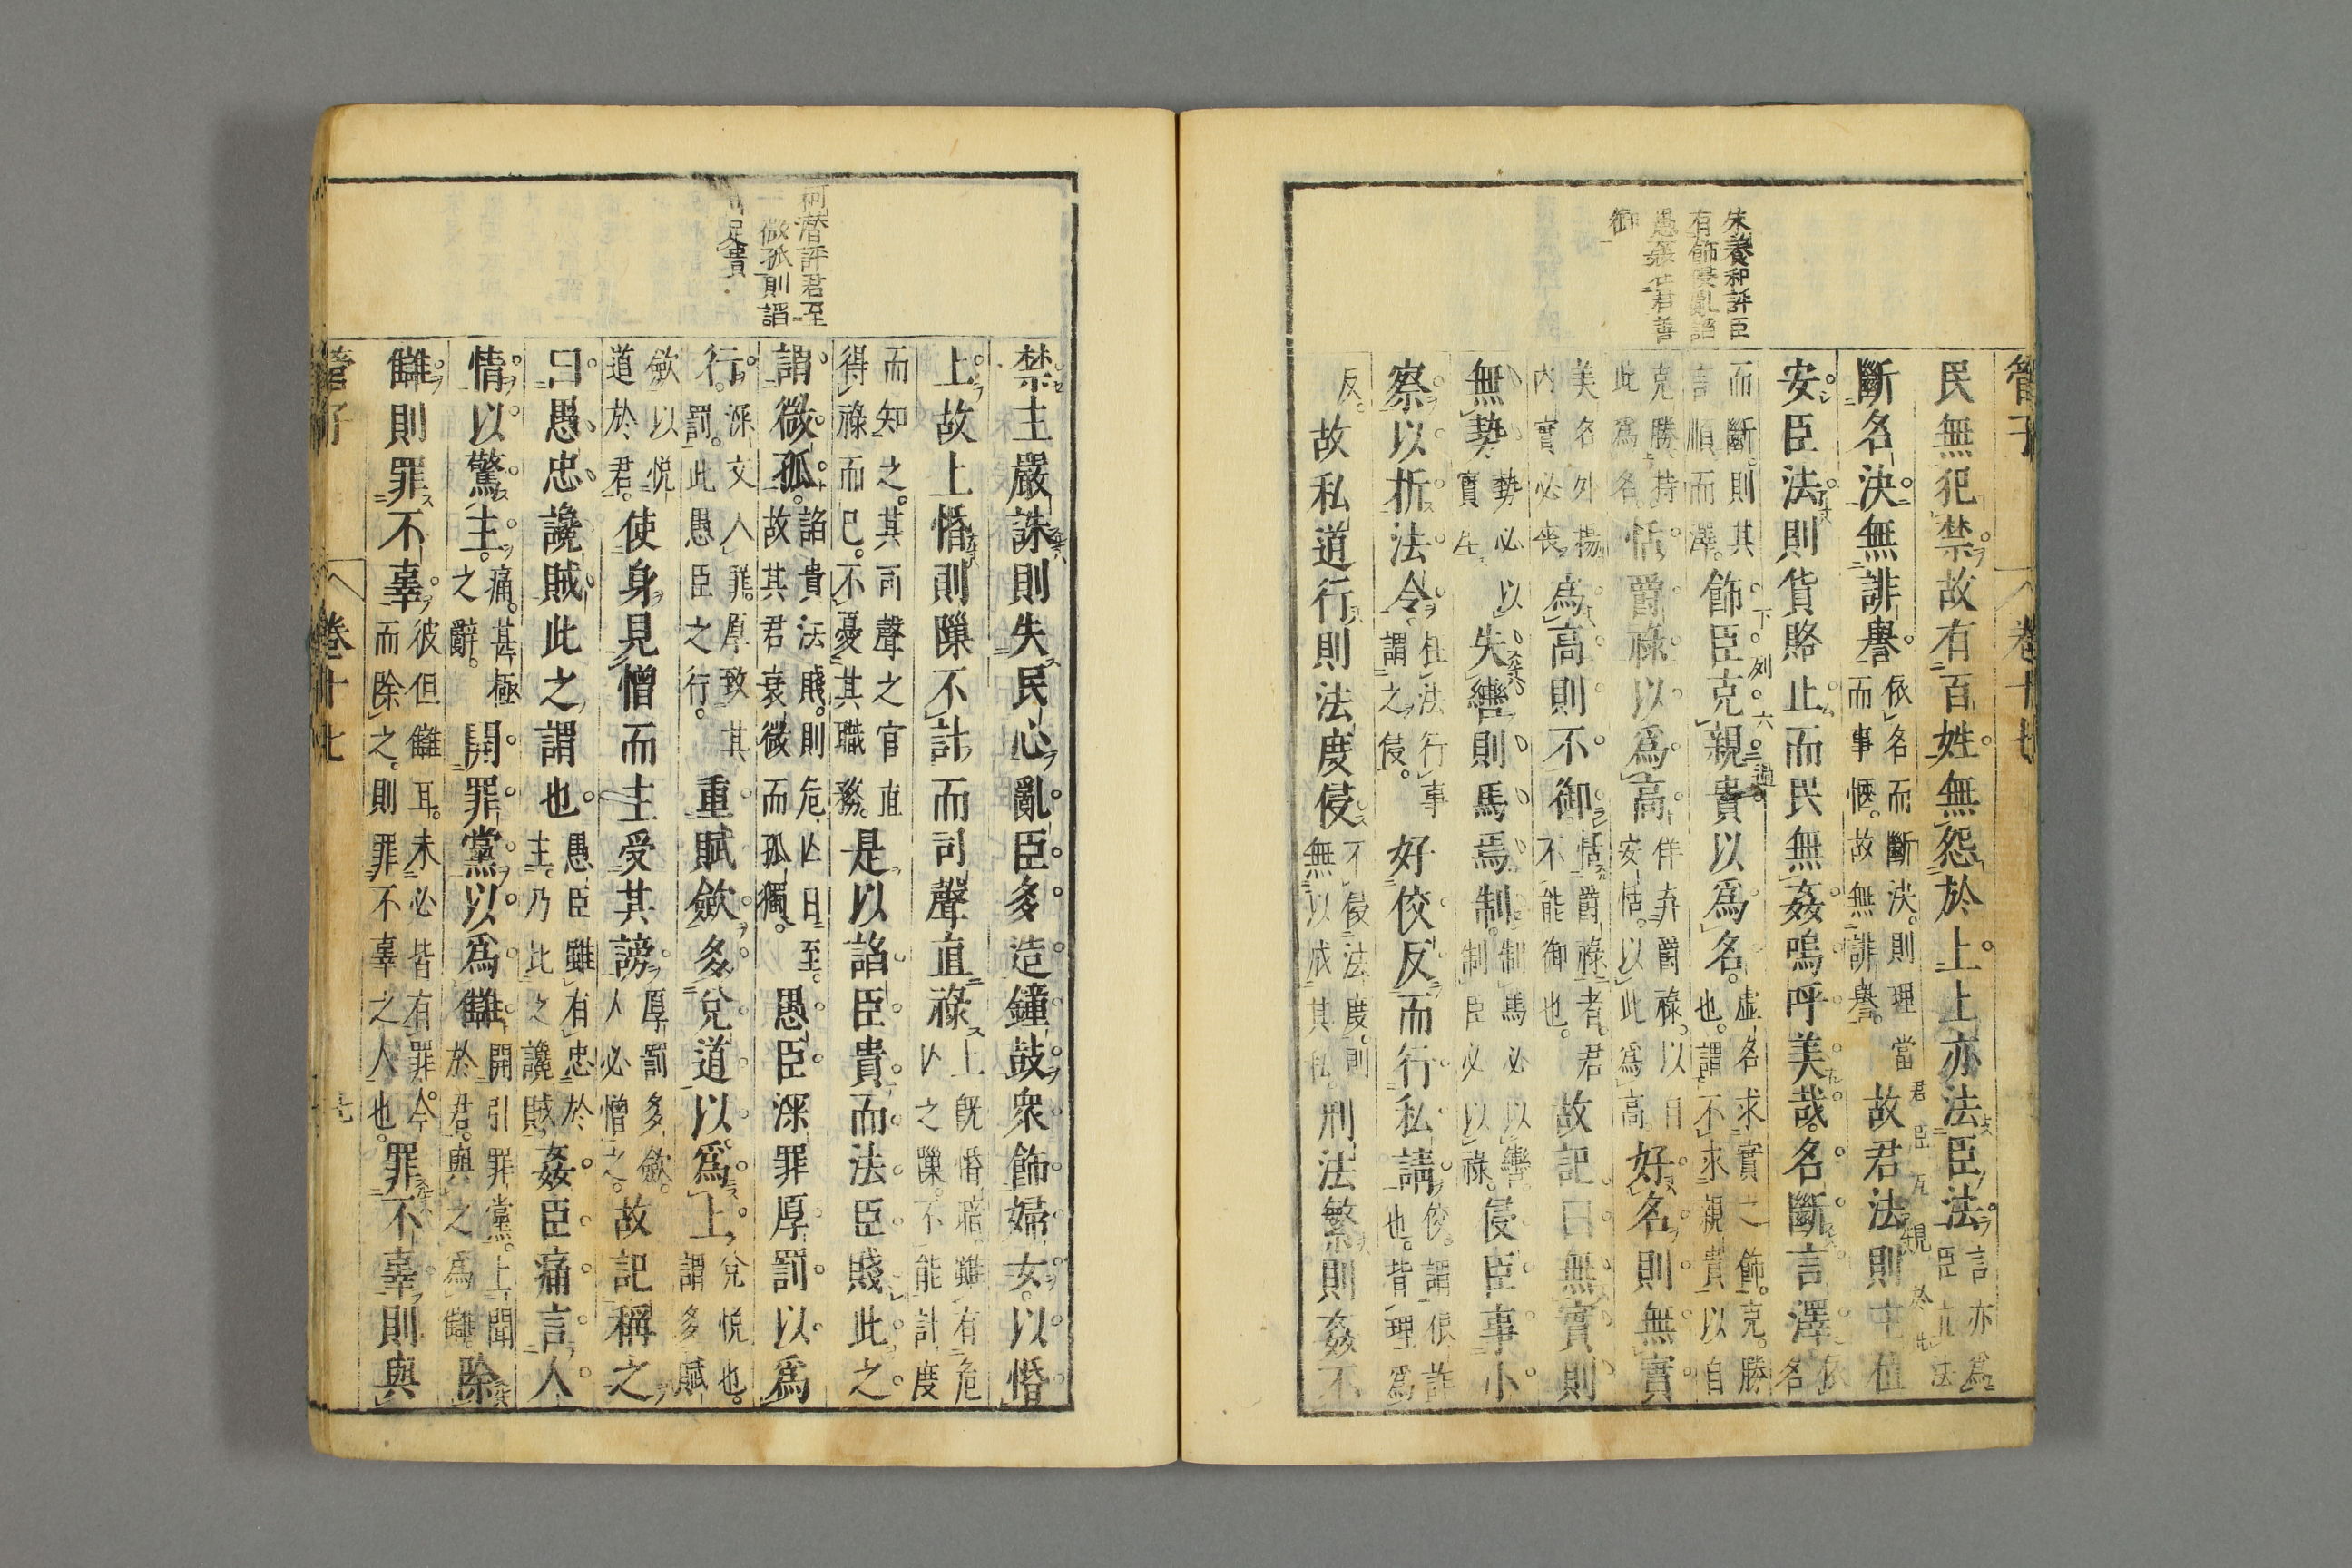 管子
卷十七
朱養和評臣
有飾侵亂諂
愚姦在君善
御
民無犯禁故有百姓無怨於上上亦法臣法言亦為臣亢法
斷名決無誹譽依名而斷決則理當而事愜故無誹譽故君法則主位
安臣法則貨賂止而民無姦嗚呼美哉名斷言澤依名
而斷則其言順而澤飾臣克親貴以為名虛名求實之飾克勝也謂不求親貴以自
克勝持此為名恬爵祿以為高佯弃爵祿以自安恬以此為高好名則無實
美名外揚內實必喪為高則不御恬爵祿者君不能御也故記曰無實則
無勢勢必以實生失轡則馬焉制制馬必以轡制臣必以祿侵臣事小
察以折法令枉法行事謂之侵好佼反而行私請佼謂佷詐也背理為
反故私道行則法度侵不侵法度則無以成其私刑法繁則姦不
君臣瓦
下列六過
柯潛評君至
微孤則諂
臣貴
禁主嚴誅則失民心亂臣多造鐘鼓衆飾婦女以惛
上故上惛則𨻶不計而司聲直祿上既惛暗雖有危亡之𨻶不能計度
而知之其司聲之官直得祿而已不憂其職務是以諂臣貴而法臣賤此之
謂微孤諂貴法賤則危亡日至故其君衰微而孤獨愚臣深罪厚罰以為
行深文人罪厚致其罰此愚臣之行重賦斂多兌道以為上兌悅也謂多賦
斂以悅道於君使身見憎而主受其謗厚罰多斂人必憎之故記稱之
曰愚忠讒賊此之謂也愚臣雖有忠於主乃此之讒賊姦臣痛言人
情以驚主痛甚極之辭開罪黨以為讎開引罪黨上聞於君與之為讎除
讎則罪不辜彼但讎耳未必皆有罪今而除之則罪不辜之人也罪不辜則與
管子
卷十七
七